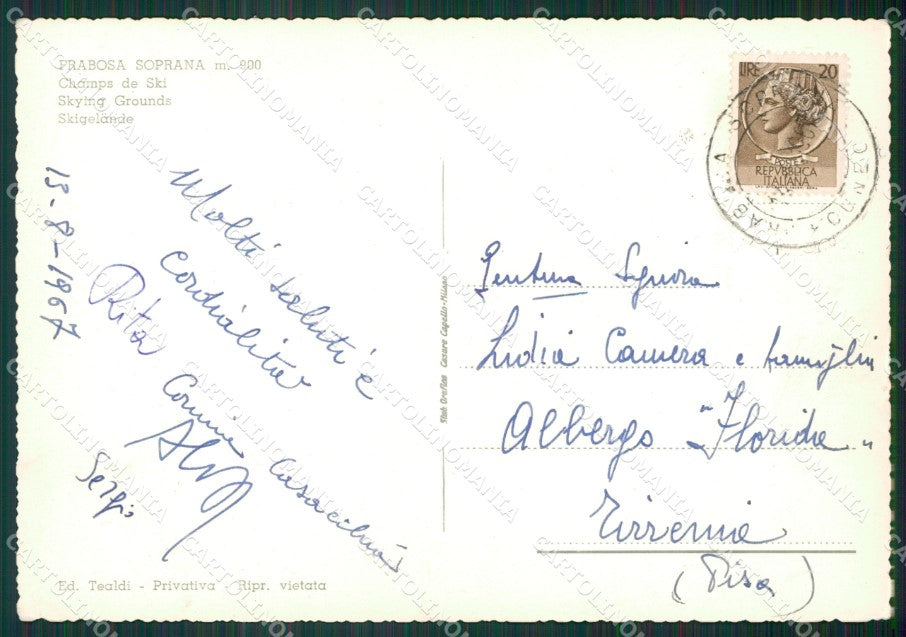 FRABOSA SOPRANA m. 900
Champs de Ski
Skying Grounds
Skigelände
13-8-1967
Molti saluti e
cordialità
Rita
Sergio
Ed. Tealdi - Privativa - Ripr. vietata
Stab. Grafico Cesare Capello-Milano
LIRE 20
POSTE
REPVBBLICA
ITALIANA
Gent.ma Signora
Lidia Camera e famiglia
Albergo "Florida"
Tirrenia
(Pisa)
CARTOLINOMANIA